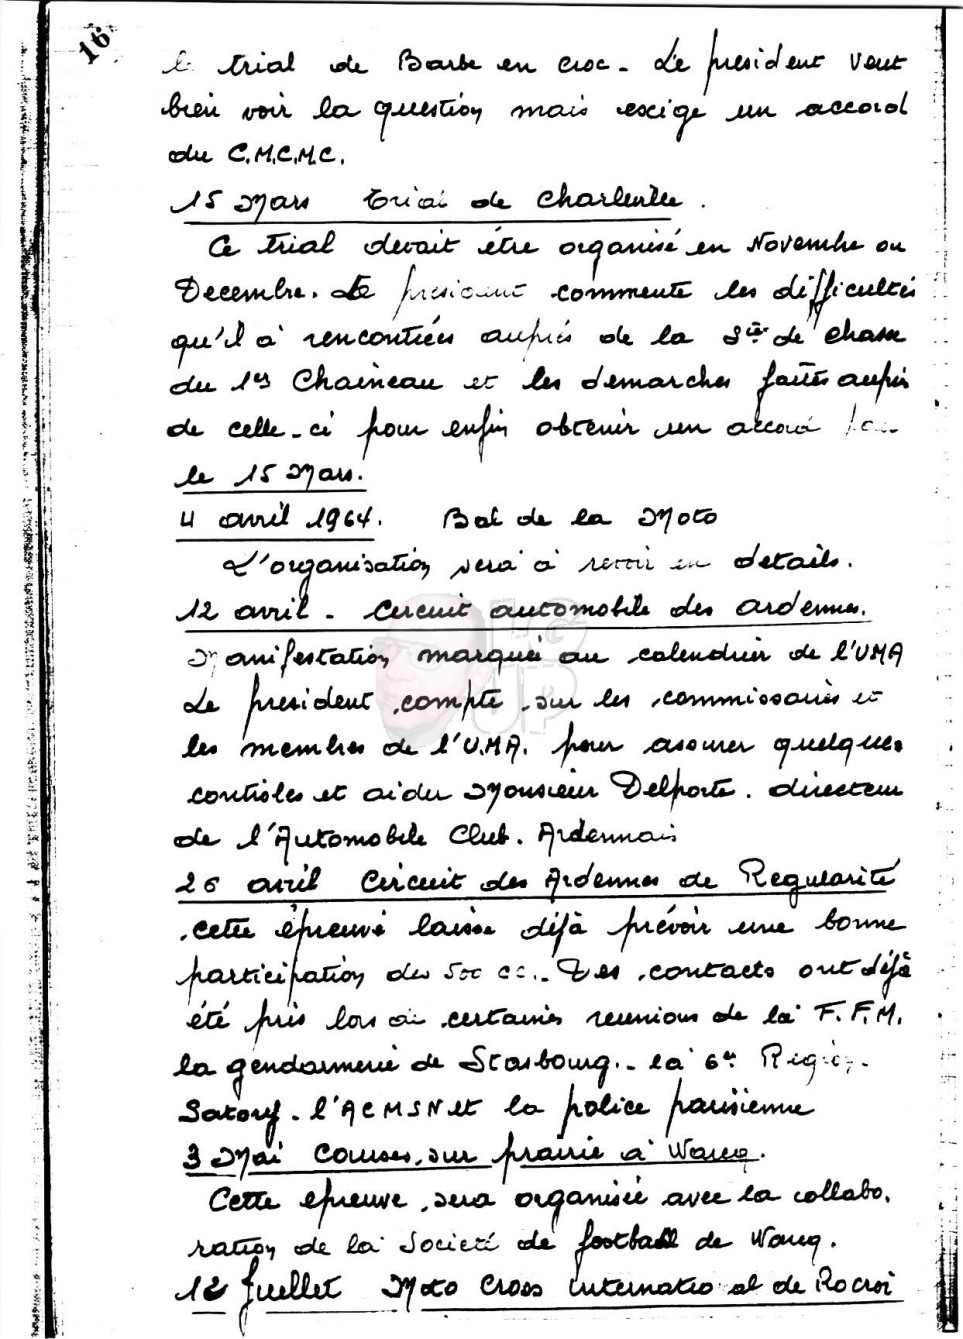 16.
le trial de Barbe en croc - Le president veut
bien voir la question mais exige un accord
du C.M.C.M.C.
15 Mars Trial de Charleville.
Ce trial devait être organisé en Novembre ou
Decembre. Le president commente les difficultés
qu'il à rencontrées auprés de la Sté de chasse
du 1er Chaineau et les demarches faites auprés
de celle-ci pour enfin obtenir un accord pour
le 15 Mars.
4 avril 1964. Bal de la Moto
L'organisation sera à revoir en details.
12 avril - Circuit automobile des ardennes.
Manifestation marquée au calendrier de l'UMA
Le president compte sur les commissaires et
les membres de l'U.M.A. pour assurer quelques
controles et aider Monsieur Delporte. directeur
de l'Automobile Club. Ardennais
26 avril Circuit des Ardennes de Regularité
cette épreuve laisse déjà prévoir une bonne
participation des 500 cc. - Des contacts ont déjà
été pris lors de certaines reunions de la F.F.M.
la gendarmerie de Strasbourg. - la 6e Region -
Satory - l'ACMSN et la police parisienne
3 Mai Courses sur prairie à Warcq.
Cette epreuve sera organisée avec la collabo.
ration de la Societé de football de Warcq.
12 Juillet Moto Cross internatio al de Rocroi
LG UP